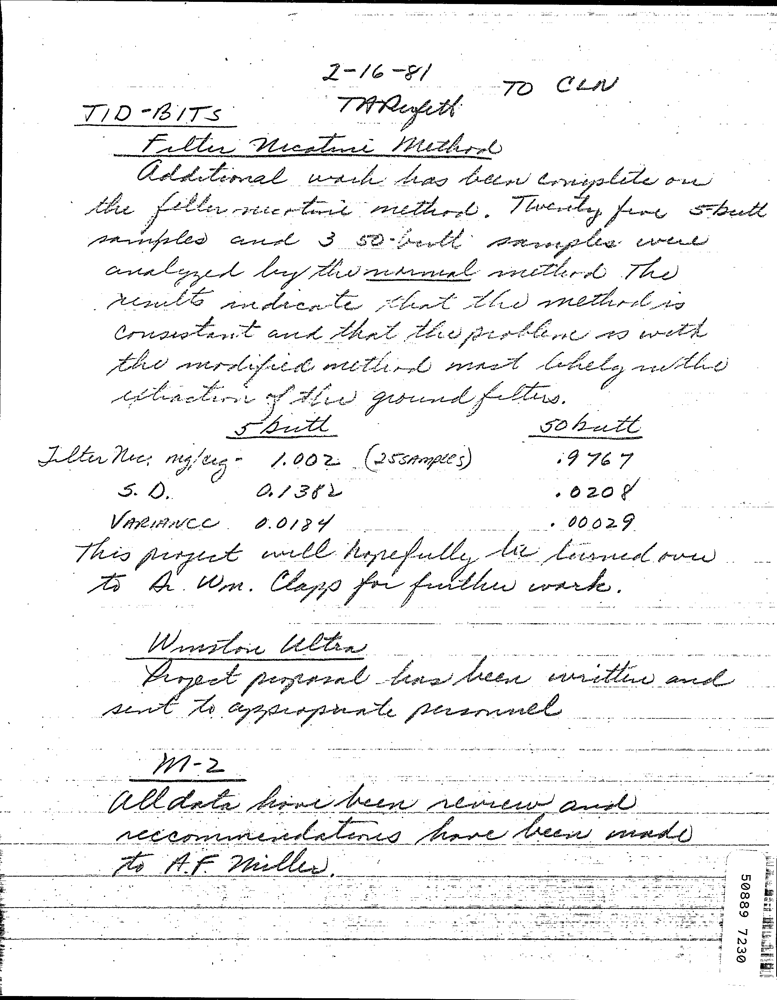 2-16-81
TO CLN
TID-BITS
TAPerfetti
Filter Nicotine Method
Additional work has been complete on
the filter nicotine method. Twenty five 5-butt
samples and 3 50-butt samples were
analyzed by the normal method The
results indicate that the method is
consistant and that the problem is with
the modified method most likely in the
extraction of the ground filters.
5 butt 50 butt
Filter Nic. mg/cig - 1.002 (25 SAMPLES) .9767
S.D. 0.1382 .0208
VARIANCE 0.0184 .00029
This project will hopefully be turned over
to Dr. Wm. Clapp for further work.
Winston Ultra
Project proposal has been written and
sent to appropriate personnel
M-2
All data have been review and
reccommendations have been made
to A.F. Miller.
50889 7230